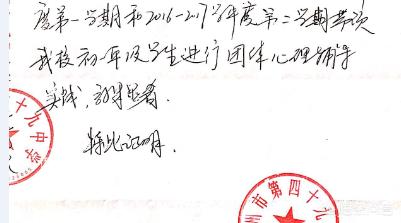 度第一学期和2016-2017学年度第二学期等次
我校初一年级学生进行团体心理辅导
实践,效果显著.
特此证明.
十九中学
州市第四十九